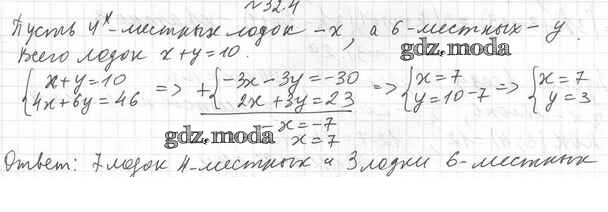 №32.4
Пусть 4х-местных лодок - x, а 6-местных - y.
Всего лодок x+y=10.
gdz.moda
{x+y=10 => +{-3x-3y=-30 => {x=7 => {x=7
{4x+6y=46 {2x+3y=23 {y=10-7 {y=3
-x=-7
gdz.moda x=7
Ответ: 7 лодок 4-местных и 3 лодки 6-местных